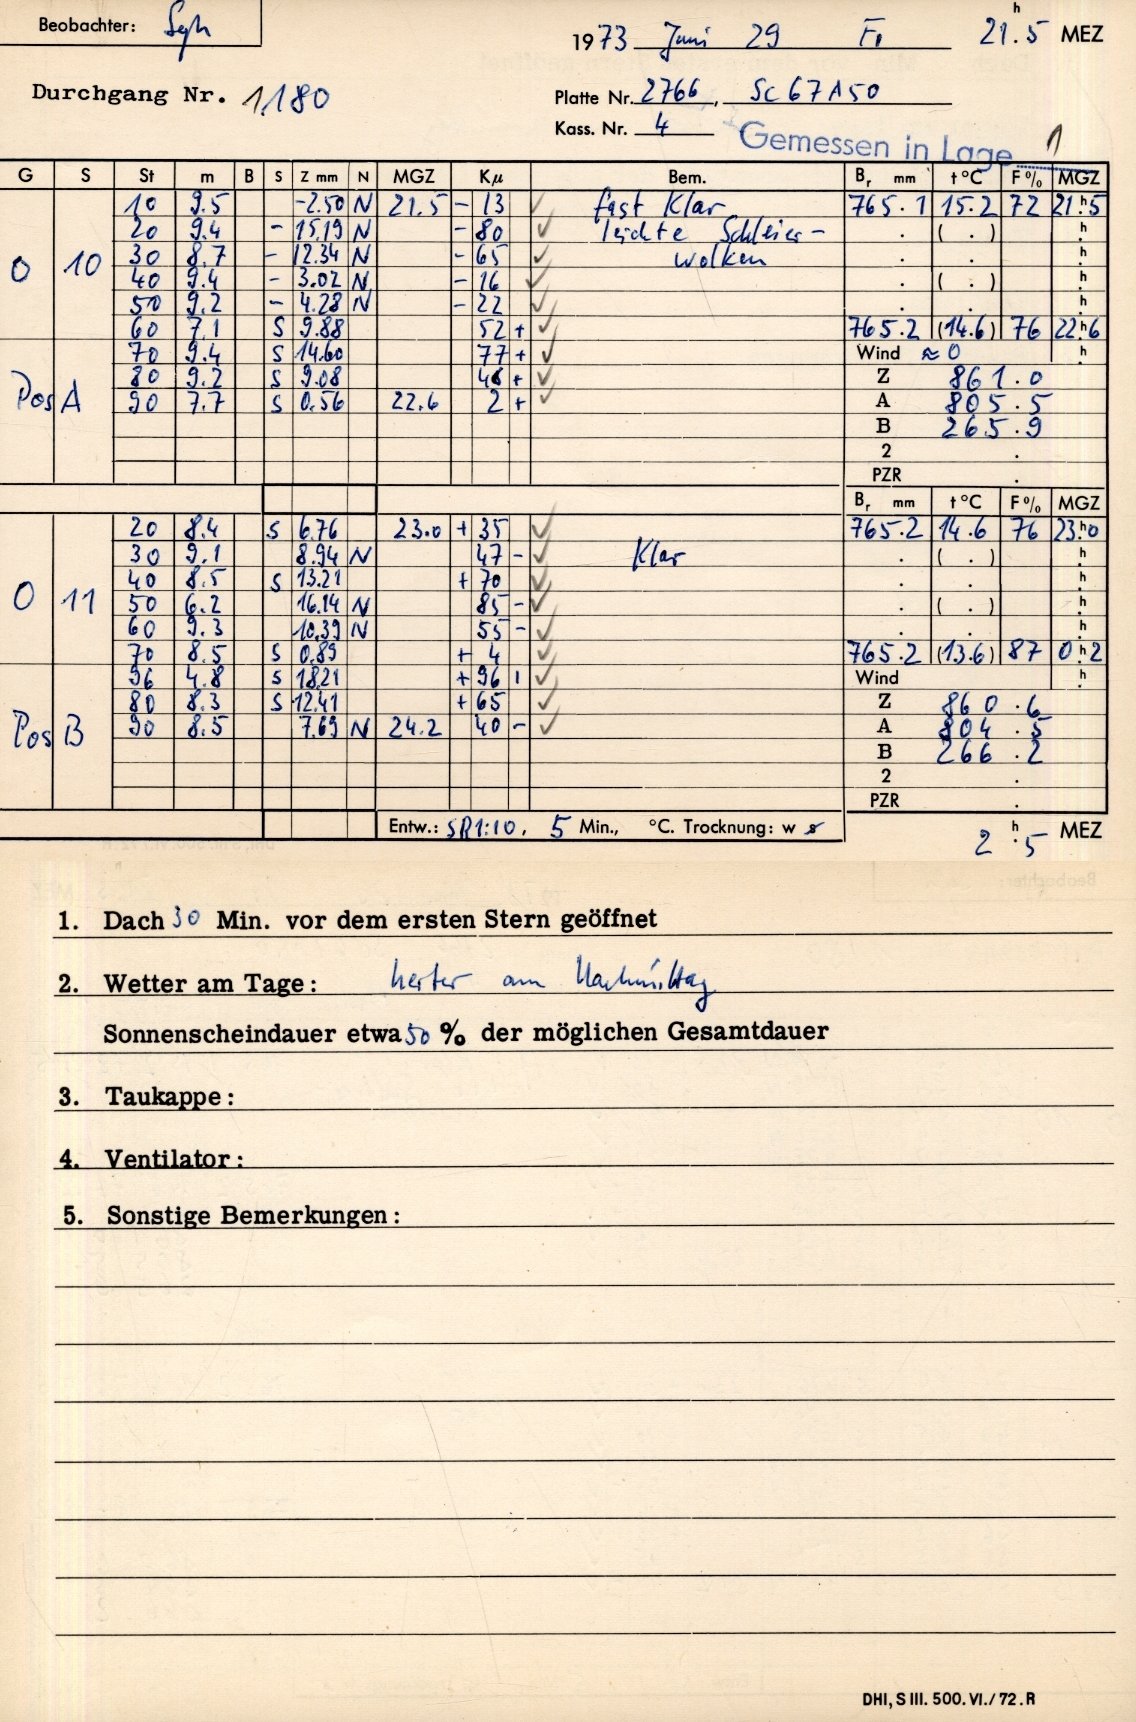 Beobachter: Sgh
1973 Juni 29 Fr 21.5 h MEZ
Durchgang Nr. 1180
Platte Nr. 2766, Sc 67 A 50
Kass. Nr. 4
Gemessen in Lage 1
G S St m B S Z mm N MGZ Kμ Bem. Br mm t °C F % MGZ
10 9.5 -2.50 N 21.5 - 13 fast klar 765.1 15.2 72 21h5
20 9.4 - 15.19 N - 80 leichte Schleier- . ( . ) h
O 10 30 8.7 - 12.34 N - 65 wolken . . h
40 9.4 - 3.02 N - 16 . ( . ) h
50 9.2 - 4.28 N - 22 . . h
60 7.1 S 9.88 52 + 765.2 (14.6) 76 22h6
70 9.4 S 14.60 77 + Wind ≈ 0 h
Pos A 80 9.2 S 9.08 48 + Z 861.0
90 7.7 S 0.56 22.6 2 + A 805.5
B 265.9
2 .
PZR .
Br mm t °C F % MGZ
20 8.4 S 6.76 23.0 + 35 765.2 14.6 76 23h0
30 9.1 8.94 N 47 - Klar . ( . ) h
40 8.5 S 13.21 + 70 . . h
O 11 50 6.2 16.14 N 85 - . ( . ) h
60 9.3 10.39 N 55 - . . h
70 8.5 S 0.89 + 4 765.2 (13.6) 87 0h2
96 4.8 S 18.21 + 96 Wind h
80 8.3 S 12.41 + 65 Z 860.6
Pos B 90 8.5 7.69 N 24.2 40 - A 804.5
B 266.2
2 .
PZR .
Entw.: SR1:10, 5 Min., °C. Trocknung: w s
2 h.5 MEZ
1. Dach 30 Min. vor dem ersten Stern geöffnet
2. Wetter am Tage: heiter am Nachmittag
Sonnenscheindauer etwa 50 % der möglichen Gesamtdauer
3. Taukappe:
4. Ventilator:
5. Sonstige Bemerkungen:
DHI, S III. 500. VI./72. R